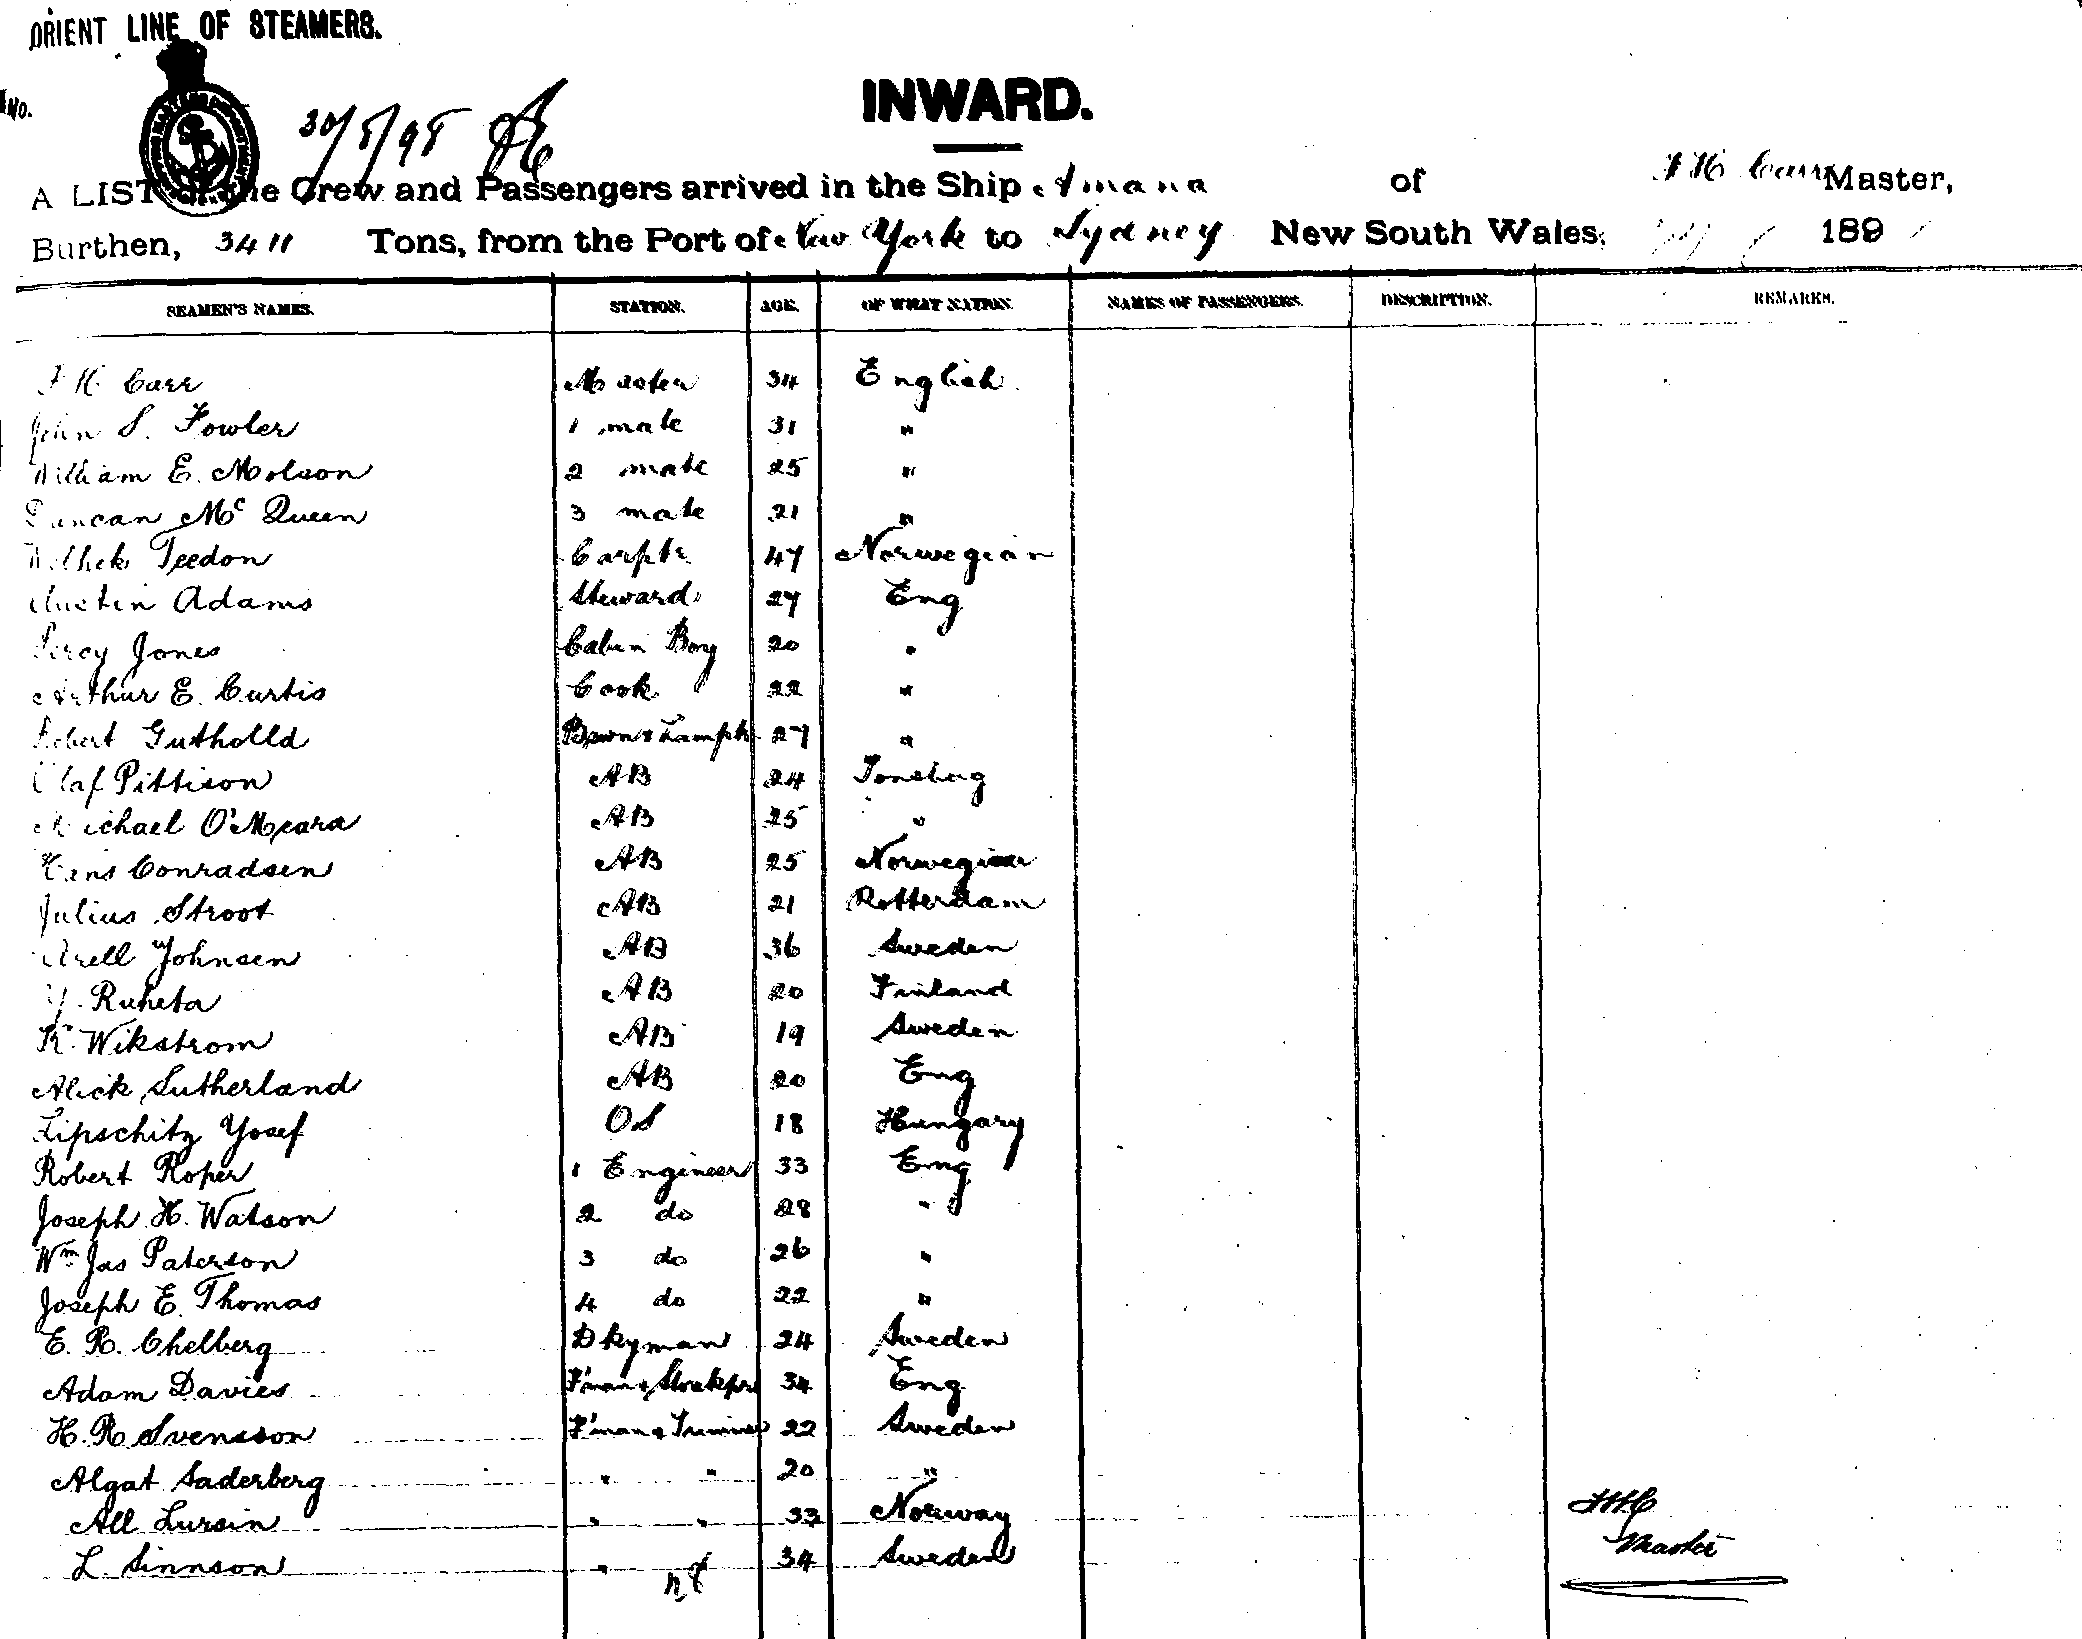 ORIENT LINE OF STEAMERS.
No.
INWARD.
30/5/98
A LIST of the Crew and Passengers arrived in the Ship Amana of F H Carr Master,
Burthen, 3411 Tons, from the Port of New York to Sydney New South Wales, 189
SEAMEN'S NAMES. STATION. AGE. OF WHAT NATION. NAMES OF PASSENGERS. DESCRIPTION. REMARKS.
F H Carr Master 34 English
John S. Fowler 1 mate 31 "
William E. Molson 2 mate 25 "
Duncan Mc Queen 3 mate 21 "
Teedon Carptr 47 Norwegian
Austin Adams Steward 27 Eng
Percy Jones Cabin Boy 20 "
Arthur E. Curtis Cook 22 "
Robert Gutholld 27 "
Olaf Pittison AB 24 Tonsberg
Michael O'Meara AB 25 "
Hans Conradsen AB 25 Norwegian
Julius Stroot AB 21 Rotterdam
Johnsen AB 36 Sweden
Y. Ruheta AB 20 Finland
K. Wikstrom AB 19 Sweden
Alick Sutherland AB 20 Eng
Lipschitz Yosef OS 18 Hungary
Robert Roper 1 Engineer 33 Eng
Joseph H. Watson 2 do 28 "
Wm Jas Paterson 3 do 26 "
Joseph E. Thomas 4 do 22 "
E. R. Chelberg Dkyman 24 Sweden
Adam Davies 34 Eng
H. R. Svensson F'man & Trimmer 22 Sweden
Algat Saderberg " " 20 "
All Lursin " " 33 Norway
L. Sinnson " 34 Sweden
FHC
Master